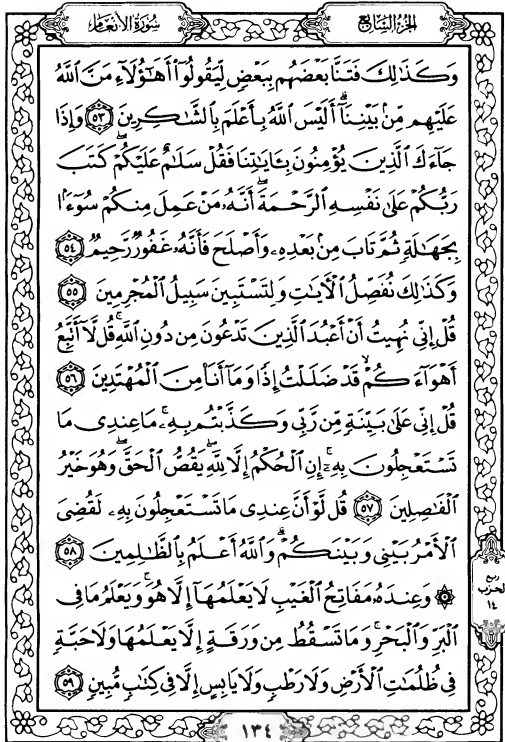 سُورَةُ الأَنْعَام
الجُزْءُ السَّابِعُ
وَكَذَٰلِكَ فَتَنَّا بَعْضَهُم بِبَعْضٍ لِّيَقُولُوٓا۟ أَهَٰٓؤُلَآءِ مَنَّ ٱللَّهُ
عَلَيْهِم مِّنۢ بَيْنِنَآ ۗ أَلَيْسَ ٱللَّهُ بِأَعْلَمَ بِٱلشَّٰكِرِينَ ٥٣ وَإِذَا
جَآءَكَ ٱلَّذِينَ يُؤْمِنُونَ بِـَٔايَٰتِنَا فَقُلْ سَلَٰمٌ عَلَيْكُمْ ۖ كَتَبَ
رَبُّكُمْ عَلَىٰ نَفْسِهِ ٱلرَّحْمَةَ ۖ أَنَّهُۥ مَنْ عَمِلَ مِنكُمْ سُوٓءًۢا
بِجَهَٰلَةٍ ثُمَّ تَابَ مِنۢ بَعْدِهِۦ وَأَصْلَحَ فَأَنَّهُۥ غَفُورٌ رَّحِيمٌ ٥٤
وَكَذَٰلِكَ نُفَصِّلُ ٱلْـَٔايَٰتِ وَلِتَسْتَبِينَ سَبِيلُ ٱلْمُجْرِمِينَ ٥٥
قُلْ إِنِّى نُهِيتُ أَنْ أَعْبُدَ ٱلَّذِينَ تَدْعُونَ مِن دُونِ ٱللَّهِ ۚ قُل لَّآ أَتَّبِعُ
أَهْوَآءَكُمْ ۙ قَدْ ضَلَلْتُ إِذًا وَمَآ أَنَا۠ مِنَ ٱلْمُهْتَدِينَ ٥٦
قُلْ إِنِّى عَلَىٰ بَيِّنَةٍ مِّن رَّبِّى وَكَذَّبْتُم بِهِۦ ۚ مَا عِندِى مَا
تَسْتَعْجِلُونَ بِهِۦٓ ۚ إِنِ ٱلْحُكْمُ إِلَّا لِلَّهِ ۖ يَقُصُّ ٱلْحَقَّ ۖ وَهُوَ خَيْرُ
ٱلْفَٰصِلِينَ ٥٧ قُل لَّوْ أَنَّ عِندِى مَا تَسْتَعْجِلُونَ بِهِۦ لَقُضِىَ
ٱلْأَمْرُ بَيْنِى وَبَيْنَكُمْ ۗ وَٱللَّهُ أَعْلَمُ بِٱلظَّٰلِمِينَ ٥٨
۞ وَعِندَهُۥ مَفَاتِحُ ٱلْغَيْبِ لَا يَعْلَمُهَآ إِلَّا هُوَ ۚ وَيَعْلَمُ مَا فِى
ٱلْبَرِّ وَٱلْبَحْرِ ۚ وَمَا تَسْقُطُ مِن وَرَقَةٍ إِلَّا يَعْلَمُهَا وَلَا حَبَّةٍ
فِى ظُلُمَٰتِ ٱلْأَرْضِ وَلَا رَطْبٍ وَلَا يَابِسٍ إِلَّا فِى كِتَٰبٍ مُّبِينٍ ٥٩
ربع
الحزب
١٤
١٣٤